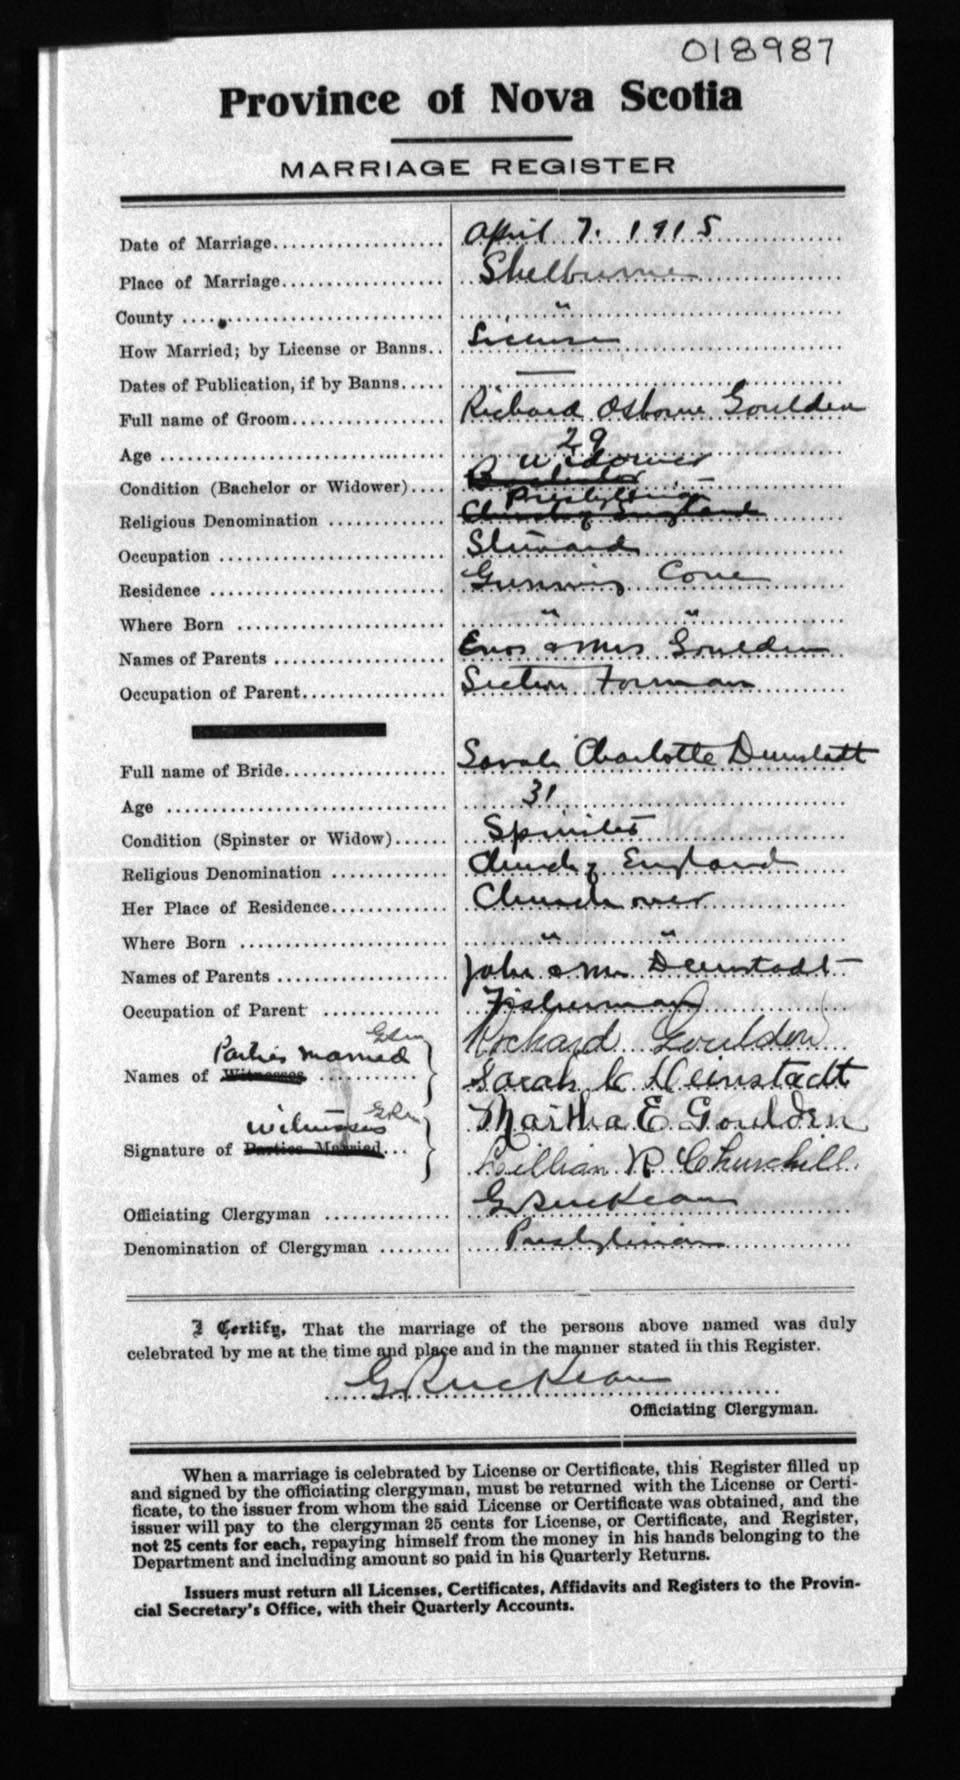 018987
Province of Nova Scotia
MARRIAGE REGISTER
Date of Marriage................... April 7. 1915
Place of Marriage.................. Shelburne
County .... " 
How Married; by License or Banns.. License
Dates of Publication, if by Banns..... —
Full name of Groom................. Richard Osborne Goulden
Age ................................ 29
Condition (Bachelor or Widower).... Bachelor Widower
Religious Denomination .............. Church of England Presbyterian
Occupation ......................... Steward
Residence .......................... Gunning Cove
Where Born ....................... " "
Names of Parents ................... Enos & Mrs Goulden
Occupation of Parent................ Section Forman
Full name of Bride.................. Sarah Charlotte Deinstadt
Age ................................ 31
Condition (Spinster or Widow)...... Spinster
Religious Denomination ............. Church of England
Her Place of Residence............. Churchover
Where Born ........................ " "
Names of Parents ................... John & Mrs Deinstadt
Occupation of Parent .............. Fisherman
Richard Goulden
Parties Married
Names of Witnesses ........... Sarah C Deinstadt
Witnesses Martha E. Goulden
Signature of Parties Married...
Lillian R Churchill
Officiating Clergyman .............
Denomination of Clergyman ........ Presbyterian
I Certify, That the marriage of the persons above named was duly
celebrated by me at the time and place and in the manner stated in this Register.
Officiating Clergyman.
When a marriage is celebrated by License or Certificate, this Register filled up
and signed by the officiating clergyman, must be returned with the License or Certi-
ficate, to the issuer from whom the said License or Certificate was obtained, and the
issuer will pay to the clergyman 25 cents for License, or Certificate, and Register,
not 25 cents for each, repaying himself from the money in his hands belonging to the
Department and including amount so paid in his Quarterly Returns.
Issuers must return all Licenses, Certificates, Affidavits and Registers to the Provin-
cial Secretary's Office, with their Quarterly Accounts.